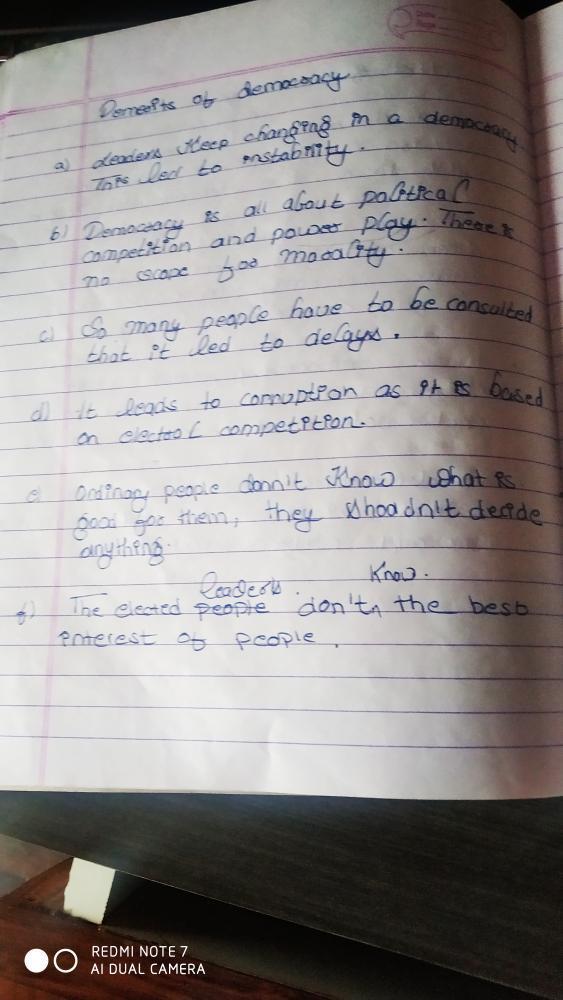 Demerits of democracy
a) leaders Keep changing in a democracy.
This led to instability.
b) Democracy is all about political
competition and power play. There is
no scope for morality.
c) So many people have to be consulted
that it led to delays.
d) it leads to corruption as it is based
on electoral competition.
e) Ordinary people donn't Know what is
good for them, they Shoadn't decide
anything.
leaders. Know.
f) The elected people don't, the best
interest of people.
REDMI NOTE 7
AI DUAL CAMERA